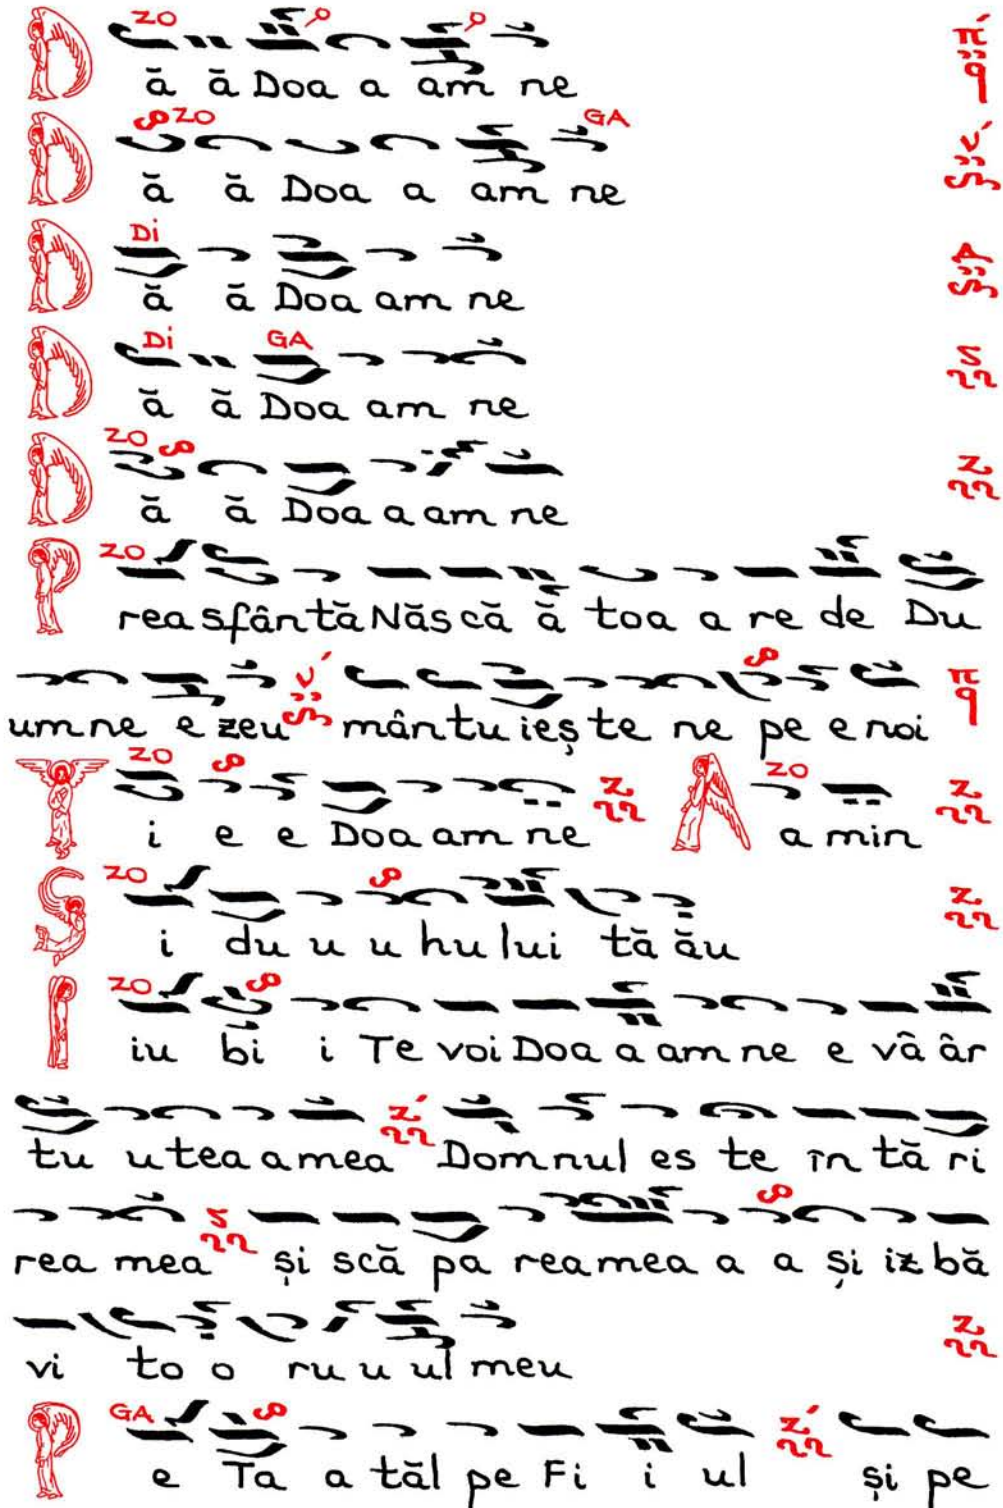 ZO
D ă ă Doa a am ne
ZO GA
D ă ă Doa a am ne
Di
D ă ă Doa am ne
Di GA
D ă ă Doa am ne
ZO
D ă ă Doa a am ne
ZO
P rea sfân tă Năs că ă toa a re de Du
um ne e zeu mân tu ieș te ne pe e noi
ZO ZO
T i e e Doa am ne A a min
ZO
S i du u u hu lui tă ău
ZO
I iu bi i Te voi Doa a am ne e vâ âr
tu u tea a mea Dom nul es te în tă ri
rea mea și scă pa rea mea a a și iz bă
vi to o ru u ul meu
GA
P e Ta a tăl pe Fi i ul și pe